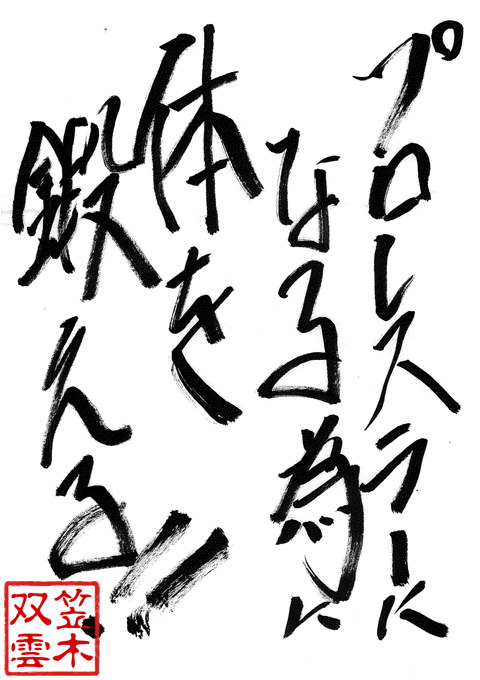 プロレスラーに
なる為に
体を
鍛える!!
笠木
双雲